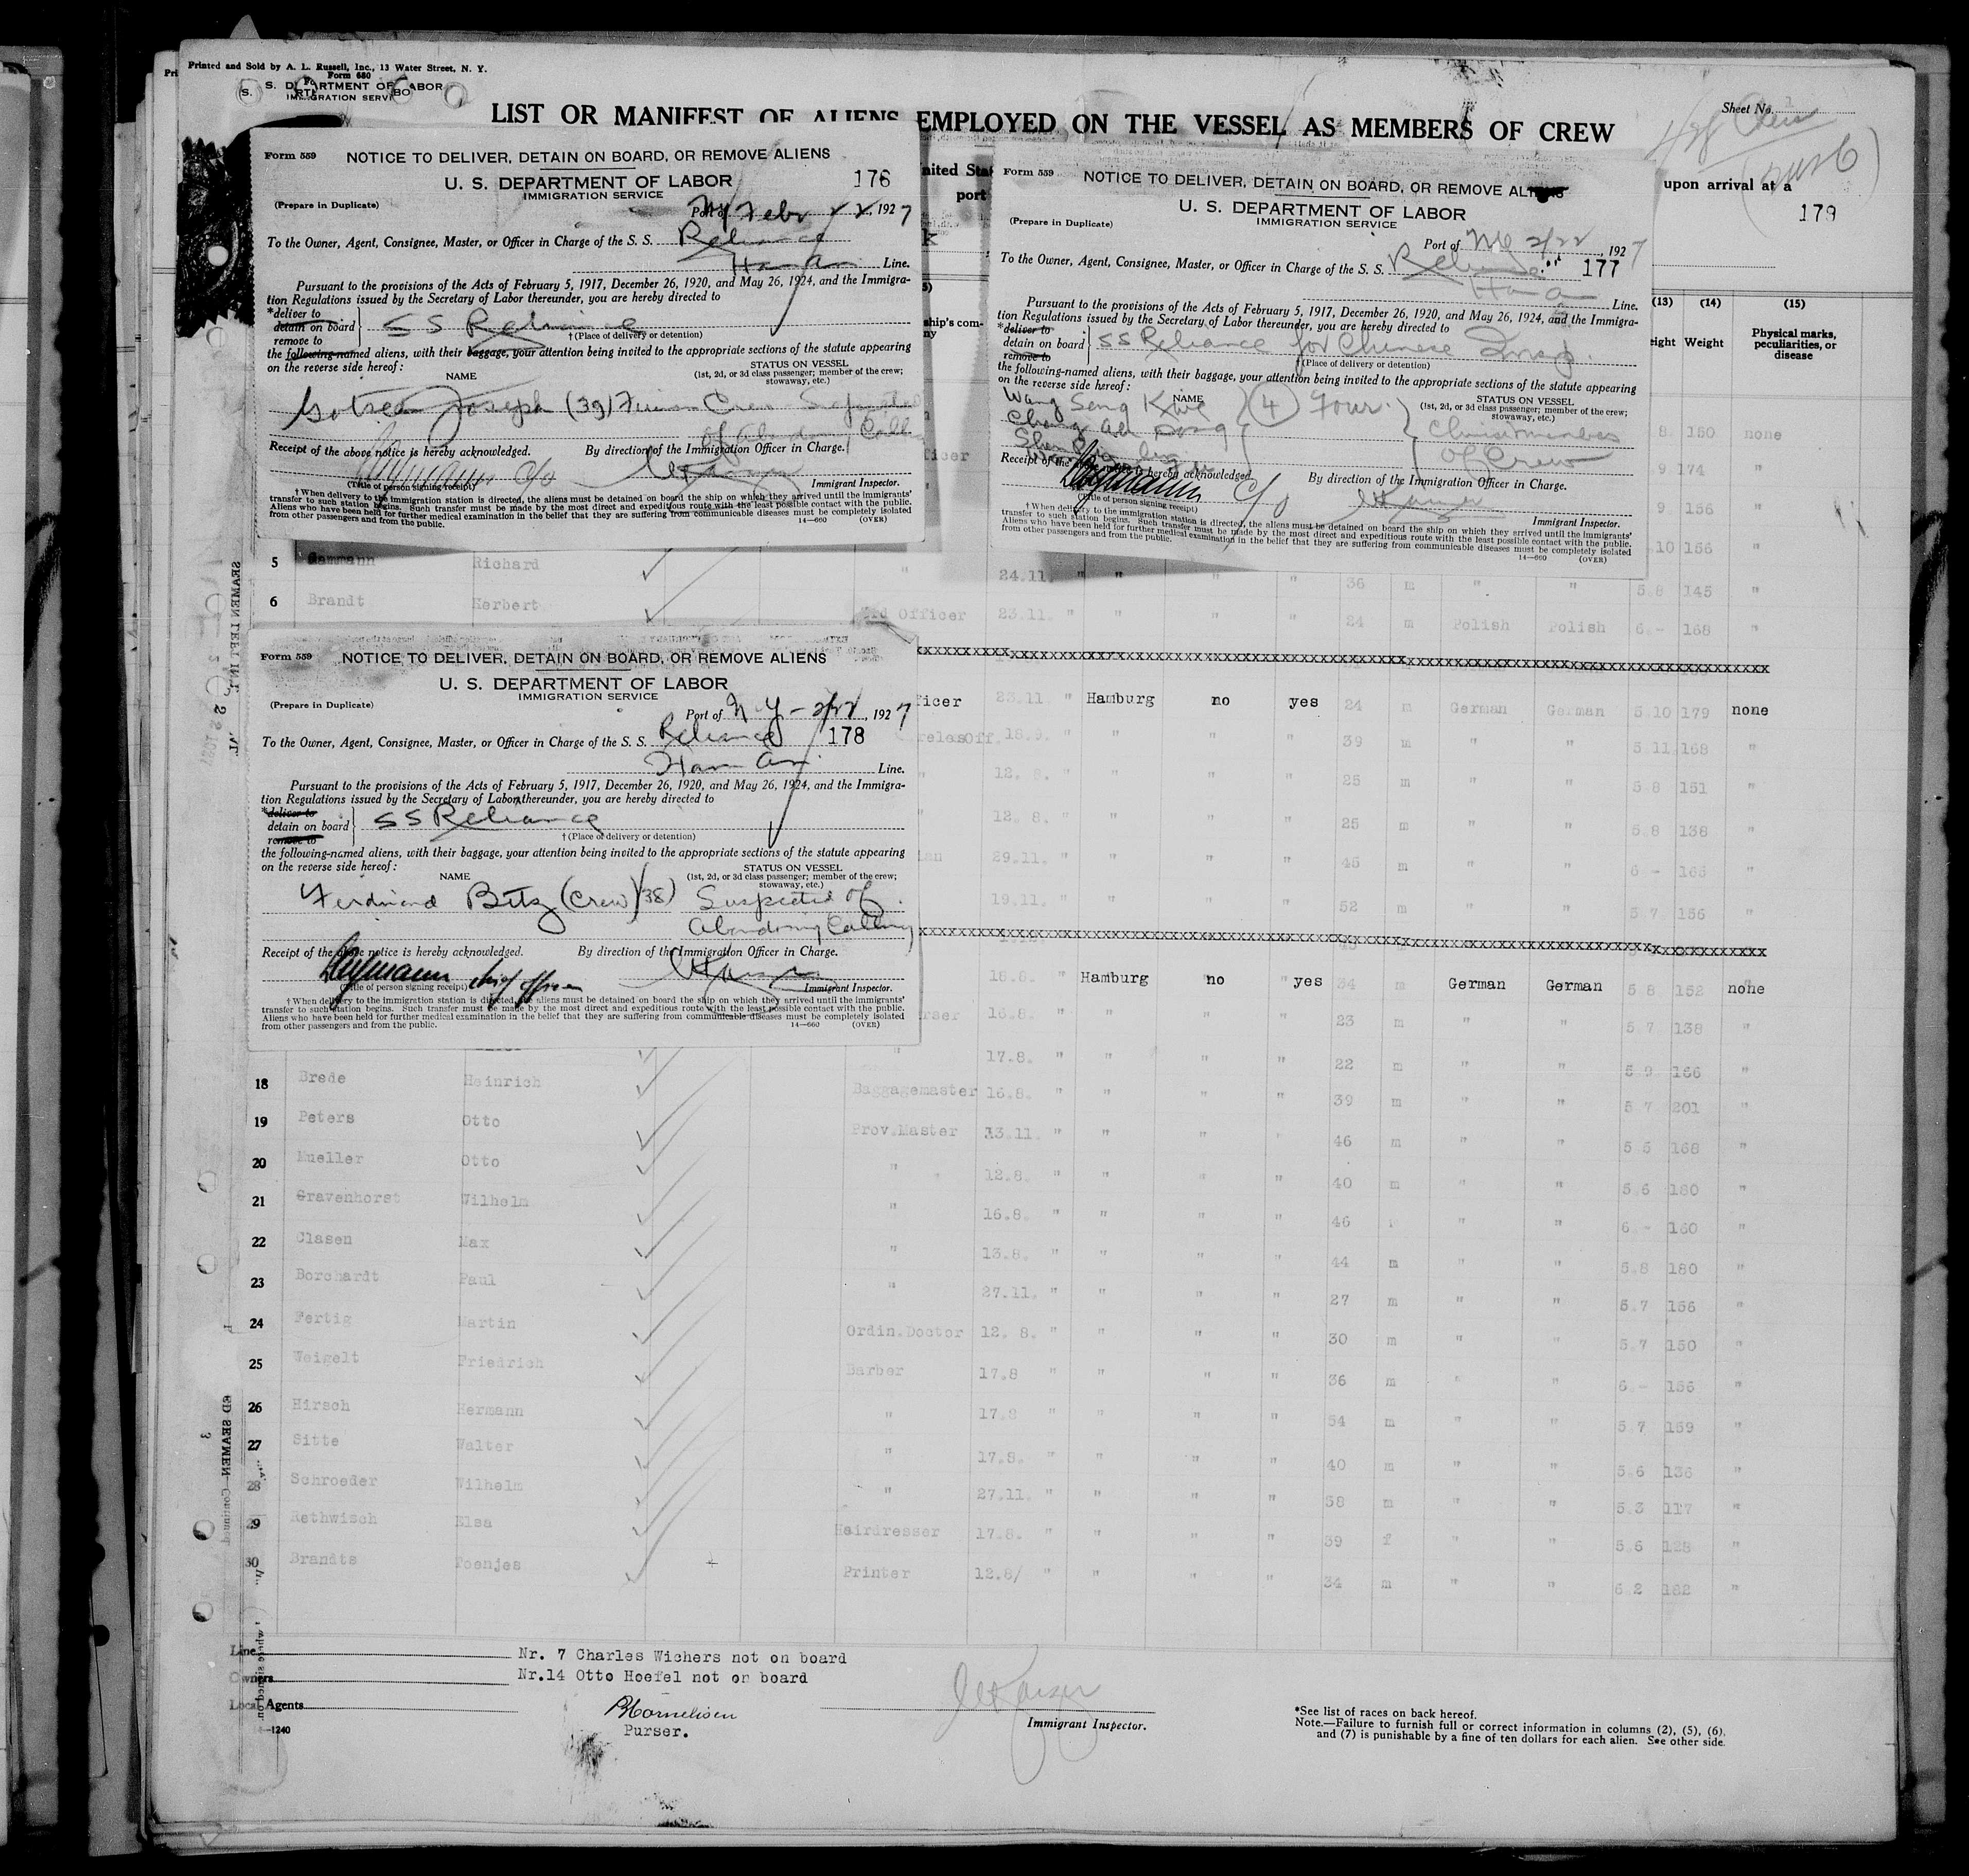 Printed and Sold by A. L. Russell, Inc., 13 Water Street, N. Y.
Form 680
S. DEPARTMENT OF LABOR
IMMIGRATION SERVICE
LIST OR MANIFEST OF ALIENS EMPLOYED ON THE VESSEL AS MEMBERS OF CREW
Sheet No.
upon arrival at a
179
Form 559
NOTICE TO DELIVER, DETAIN ON BOARD, OR REMOVE ALIENS
U. S. DEPARTMENT OF LABOR 176
IMMIGRATION SERVICE
(Prepare in Duplicate)
Port of NY Febr 22, 1927
To the Owner, Agent, Consignee, Master, or Officer in Charge of the S. S. Reliance
Ham Am Line.
Pursuant to the provisions of the Acts of February 5, 1917, December 26, 1920, and May 26, 1924, and the Immigra-
tion Regulations issued by the Secretary of Labor thereunder, you are hereby directed to
*deliver to
detain on board SS Reliance
remove to
†(Place of delivery or detention)
the following-named aliens, with their baggage, your attention being invited to the appropriate sections of the statute appearing
on the reverse side hereof:
NAME
STATUS ON VESSEL
(1st, 2d, or 3d class passenger; member of the crew;
stowaway, etc.)
Joseph (39) Crew
Receipt of the above notice is hereby acknowledged. By direction of the Immigration Officer in Charge.
c/o
(Title of person signing receipt)
Immigrant Inspector.
†When delivery to the immigration station is directed, the aliens must be detained on board the ship on which they arrived until the immigrants'
transfer to such station begins. Such transfer must be made by the most direct and expeditious route with the least possible contact with the public.
Aliens who have been held for further medical examination in the belief that they are suffering from communicable diseases must be completely isolated
from other passengers and from the public.
14—660 (OVER)
Form 559
NOTICE TO DELIVER, DETAIN ON BOARD, OR REMOVE ALIENS
U. S. DEPARTMENT OF LABOR
IMMIGRATION SERVICE
(Prepare in Duplicate)
Port of NY 2/22, 1927
To the Owner, Agent, Consignee, Master, or Officer in Charge of the S. S. Reliance 177
Line.
Pursuant to the provisions of the Acts of February 5, 1917, December 26, 1920, and May 26, 1924, and the Immigra-
tion Regulations issued by the Secretary of Labor thereunder, you are hereby directed to
*deliver to
detain on board SS Reliance for Chinese Insp.
remove to
(Place of delivery or detention)
the following-named aliens, with their baggage, your attention being invited to the appropriate sections of the statute appearing
on the reverse side hereof:
NAME
STATUS ON VESSEL
(1st, 2d, or 3d class passenger; member of the crew;
stowaway, etc.)
Wang Song (4) Four
Chinese members
of Crew
Receipt of the above notice is hereby acknowledged. By direction of the Immigration Officer in Charge.
c/o
(Title of person signing receipt)
Immigrant Inspector.
†When delivery to the immigration station is directed, the aliens must be detained on board the ship on which they arrived until the immigrants'
transfer to such station begins. Such transfer must be made by the most direct and expeditious route with the least possible contact with the public.
Aliens who have been held for further medical examination in the belief that they are suffering from communicable diseases must be completely isolated
from other passengers and from the public.
14—660 (OVER)
(13) (14) (15)
Weight
Physical marks,
peculiarities, or
disease
8 150 none
9 174 "
9 156 "
10 156 "
5 Richard 24.11. " " " " 36 m " " 5 8 145 "
6 Brandt Herbert 3rd Officer 23.11. " " " " 24 m Polish Polish 6 - 168 "
Form 559
NOTICE TO DELIVER, DETAIN ON BOARD, OR REMOVE ALIENS
U. S. DEPARTMENT OF LABOR
IMMIGRATION SERVICE
(Prepare in Duplicate)
Port of N.Y - 2/22, 1927
To the Owner, Agent, Consignee, Master, or Officer in Charge of the S. S. Reliance 178
Ham Am. Line.
Pursuant to the provisions of the Acts of February 5, 1917, December 26, 1920, and May 26, 1924, and the Immigra-
tion Regulations issued by the Secretary of Labor thereunder, you are hereby directed to
*deliver to
detain on board SS Reliance
remove to
†(Place of delivery or detention)
the following-named aliens, with their baggage, your attention being invited to the appropriate sections of the statute appearing
on the reverse side hereof:
NAME
STATUS ON VESSEL
(1st, 2d, or 3d class passenger; member of the crew;
stowaway, etc.)
Ferdinand Betz (Crew) (38) Suspected of
abandoning Calling
Receipt of the above notice is hereby acknowledged. By direction of the Immigration Officer in Charge.
chief officer
(Title of person signing receipt)
Immigrant Inspector.
†When delivery to the immigration station is directed, the aliens must be detained on board the ship on which they arrived until the immigrants'
transfer to such station begins. Such transfer must be made by the most direct and expeditious route with the least possible contact with the public.
Aliens who have been held for further medical examination in the belief that they are suffering from communicable diseases must be completely isolated
from other passengers and from the public.
14—660 (OVER)
23.11 " Hamburg no yes 24 m German German 5 10 179 none
18.9. " " " " 39 m " " 5 11 168 "
12. 8. " " " " 25 m " " 5 8 151 "
12. 8. " " " " 25 m " " 5 8 138 "
29.11. " " " " 45 m " " 6 - 165 "
19.11. " " " " 52 m " " 5 7 156 "
16.8. " Hamburg no yes 34 m German German 5 8 152 none
16.8. " " " " 23 m " " 5 7 138 "
17.8. " " " " 22 m " " 5 9 166 "
18 Brede Heinrich Baggagemaster 16.8. " " " " 39 m " " 5 7 201 "
19 Peters Otto Prov.Master 13.11. " " " " 46 m " " 5 5 168 "
20 Mueller Otto " 12.8. " " " " 40 m " " 5.6 180 "
21 Gravenhorst Wilhelm " 16.8. " " " " 46 " " 6 - 160 "
22 Clasen Max " 13.8. " " " " 44 m " " 5.8 180 "
23 Borchardt Paul " 27.11. " " " " 27 m " " 5.7 156 "
24 Fertig Martin Ordin.Doctor 12. 8. " " " " 30 m " " 5.7 150 "
25 Weigelt Friedrich Barber 17.8 " " " " 36 m " " 6 - 156 "
26 Hirsch Hermann " 17.8 " " " " 54 m " " 5 7 159 "
27 Sitte Walter " 17.8. " " " " 40 m " " 5.6 136 "
28 Schroeder Wilhelm " 27.11. " " " " 58 m " " 5.3 117 "
29 Rethwisch Elsa Hairdresser 17.8. " " " " 39 f " " 5 6 128 "
30 Brandts Toenjes Printer 12.8/ " " " " 34 m " " 6 2 182 "
Line
Nr. 7 Charles Wichers not on board
Owners
Nr.14 Otto Hoefel not on board
Local Agents
Purser.
Immigrant Inspector.
—1240
*See list of races on back hereof.
Note.—Failure to furnish full or correct information in columns (2), (5), (6),
and (7) is punishable by a fine of ten dollars for each alien. See other side.